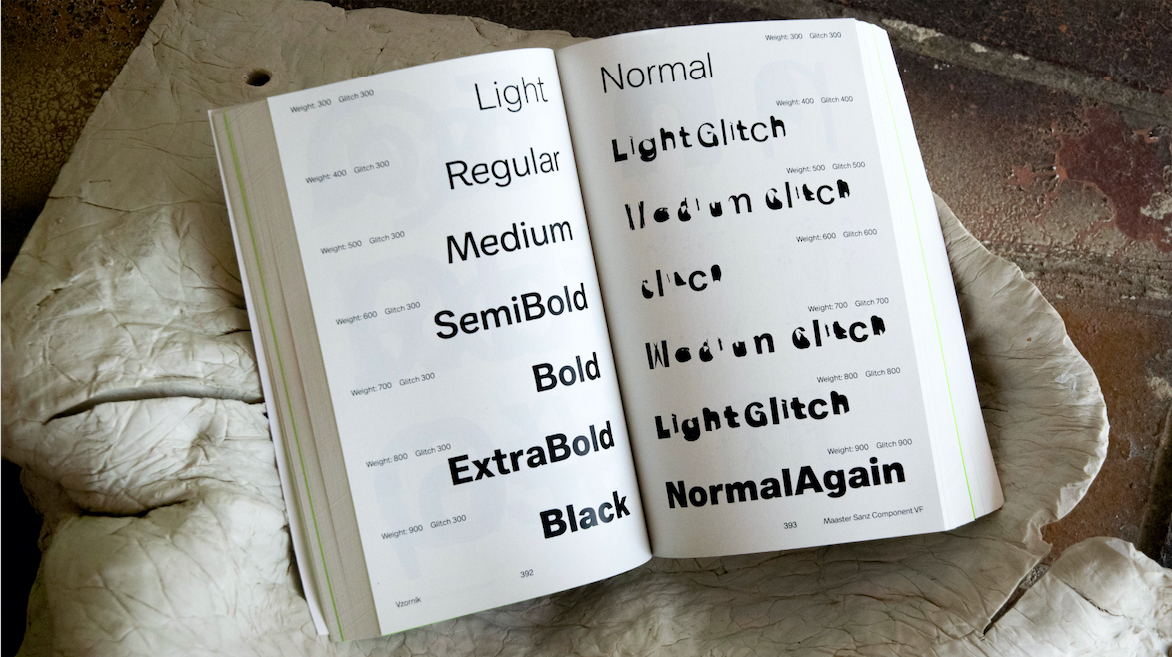 Weight: 300 Glitch 300
Light
Weight: 400 Glitch 300
Regular
Weight: 500 Glitch 300
Medium
Weight: 600 Glitch 300
SemiBold
Weight: 700 Glitch 300
Bold
Weight: 800 Glitch 300
ExtraBold
Weight: 900 Glitch 300
Black
392
Vzorník
Weight: 300 Glitch 300
Normal
Weight: 400 Glitch 400
LightGlitch
Weight: 500 Glitch 500
Medium Glitch
Weight: 600 Glitch 600
Glitch
Weight: 700 Glitch 700
Medium Glitch
Weight: 800 Glitch 800
LightGlitch
Weight: 900 Glitch 900
NormalAgain
393 Maaster Sanz Component VF